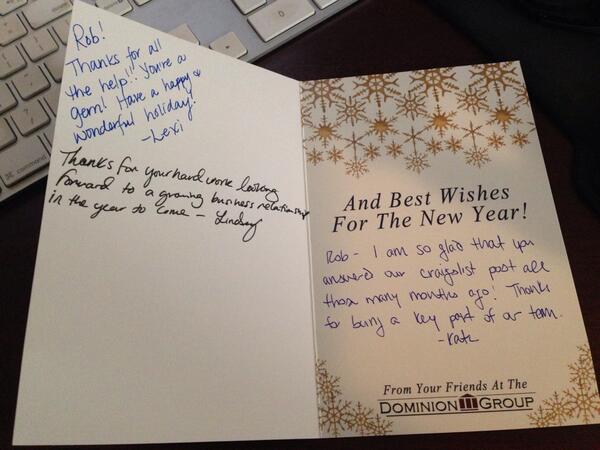 Rob!
Thanks for all
the help!! You're a
gem! Have a happy &
wonderful holiday!
-Lexi
Thanks for your hard work looking
forward to a growing business relationship
in the year to come - Lindsay
And Best Wishes
For The New Year!
Rob - I am so glad that you
answered our craigslist post all
those many months ago! Thanks
for being a key part of our team.
- Kate
From Your Friends At The
DOMINION GROUP
command